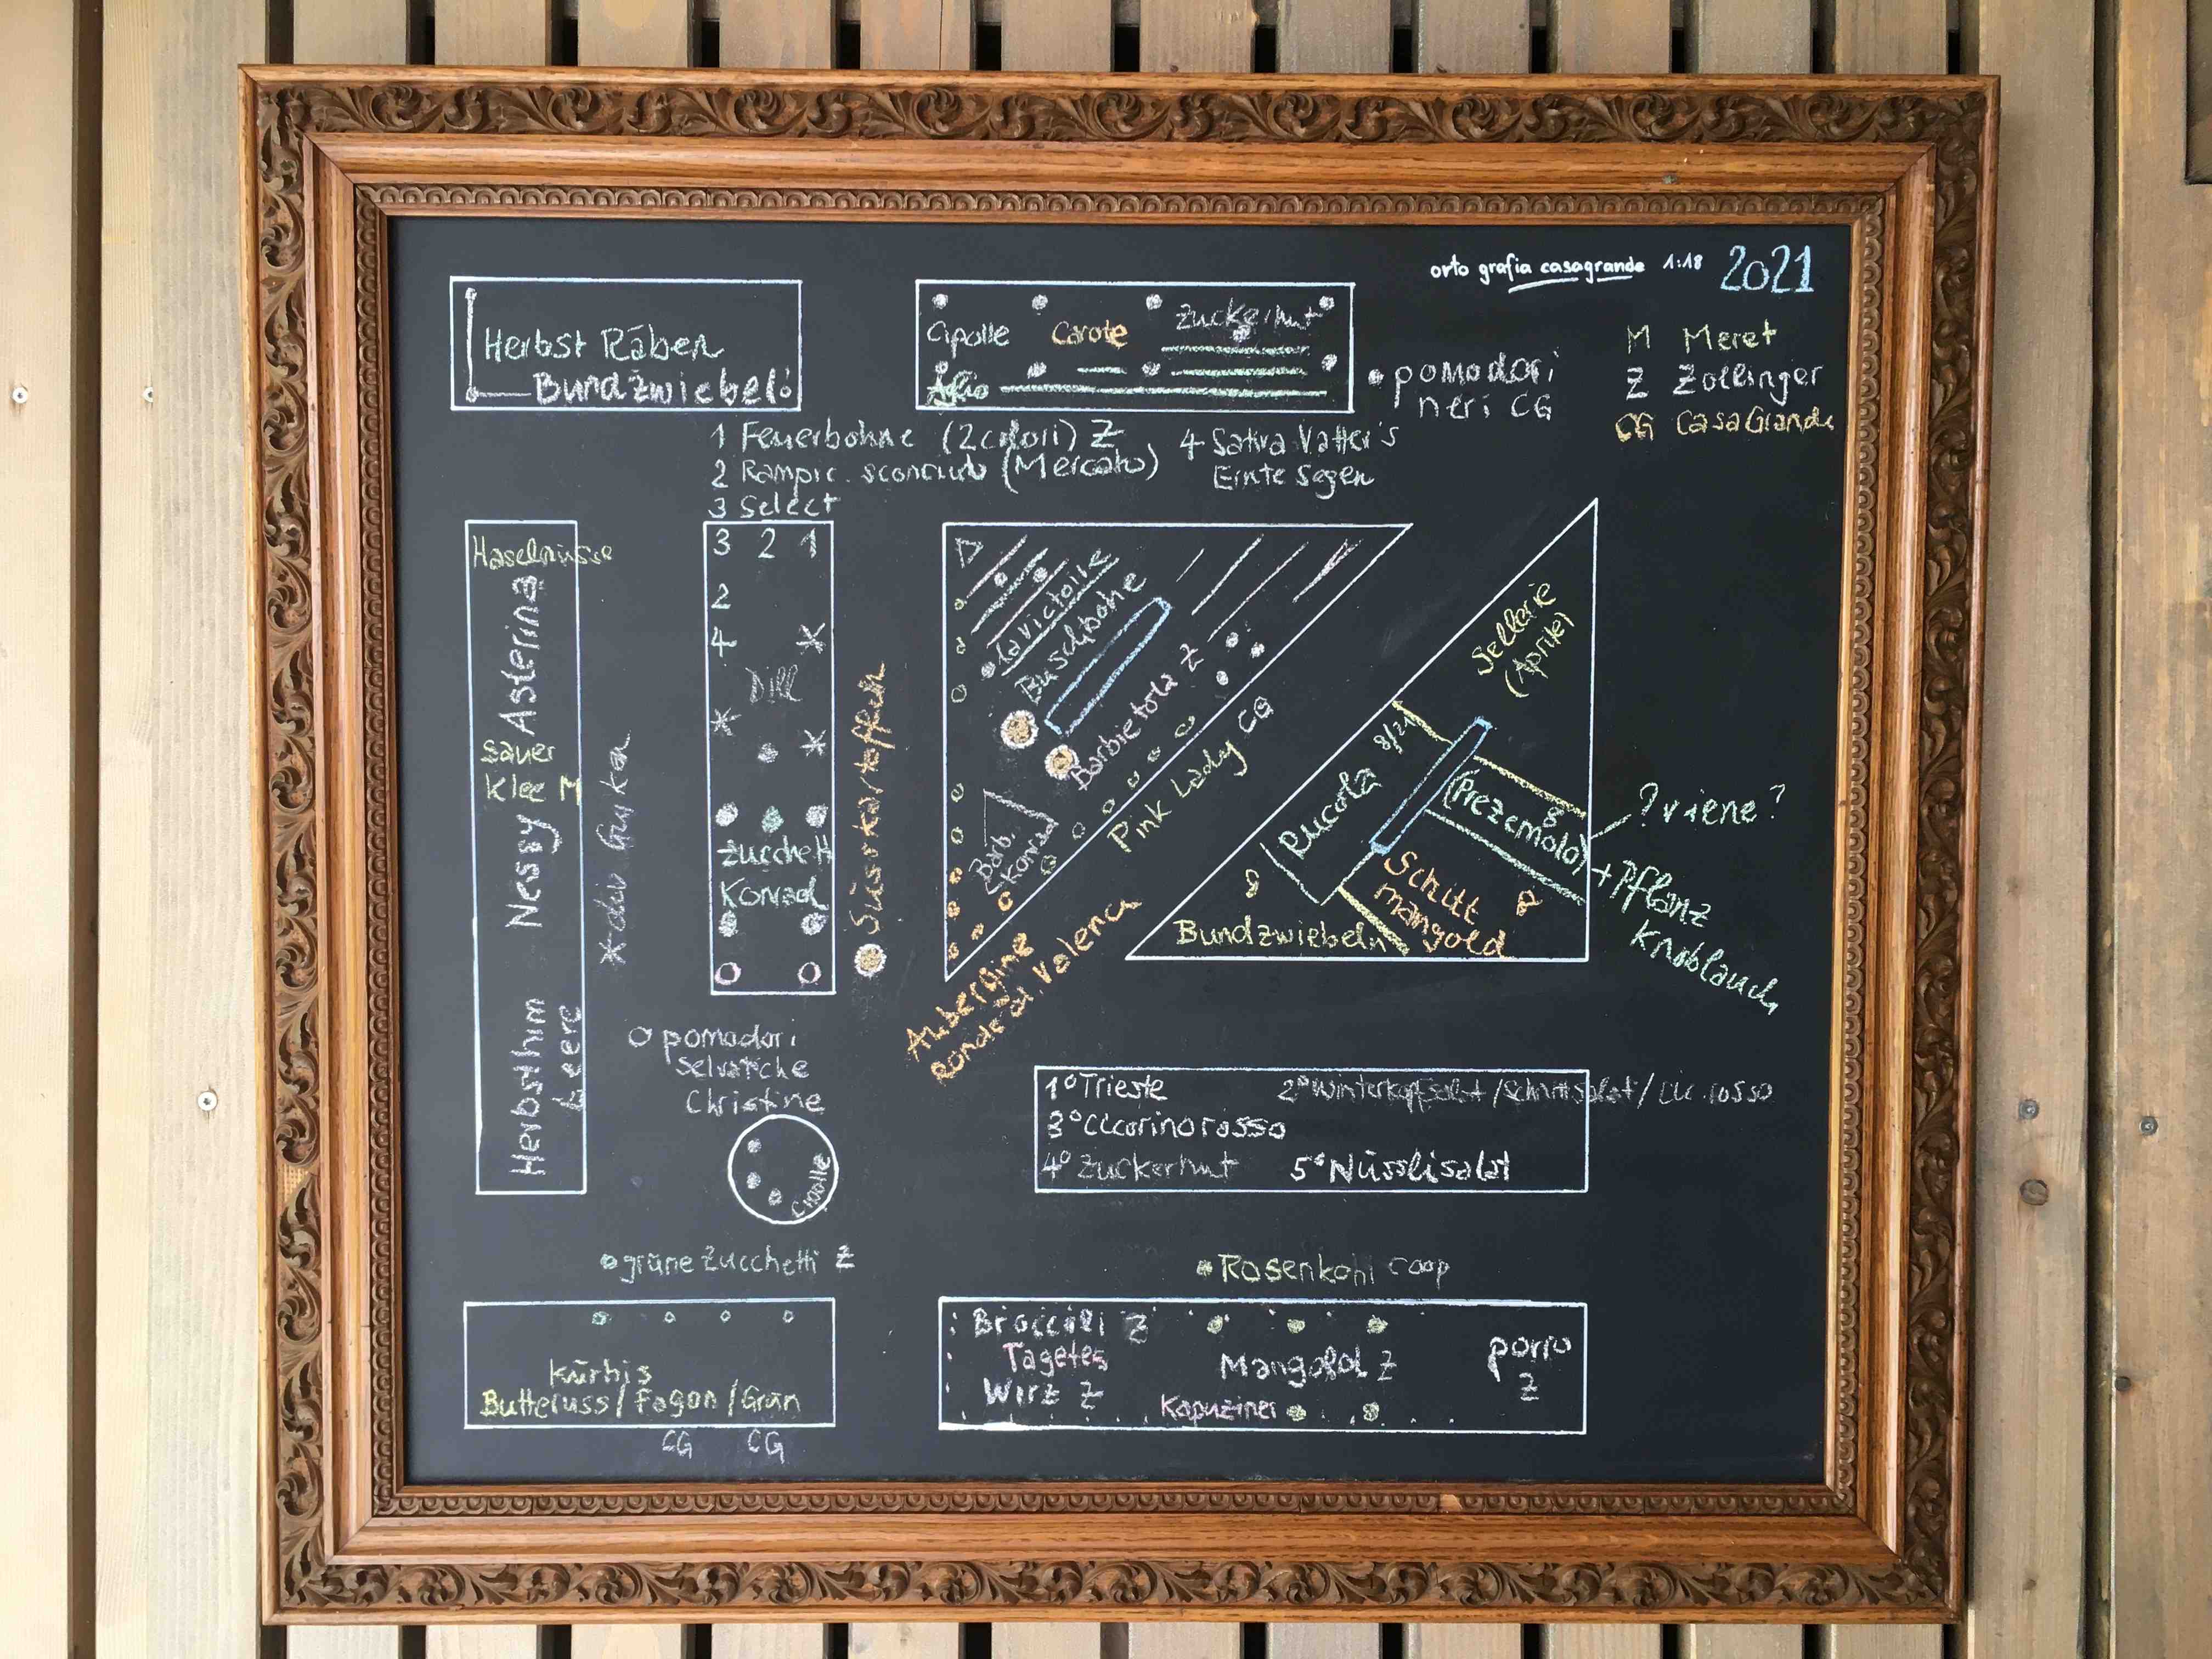 orto grafia casagrande 1:18 2021
M Meret
Z Zollinger
CG CasaGrande
Herbst Räben
Bundzwiebeli
Cipolle Carote Zuckerhut
Aglio
pomodori
neri CG
1 Feuerbohne (2 colori) Z
2 Rampic. (Mercato)
3 Select
4 Sativa Vatter's
Ernte Segen
Haselnüsse
Asterina
Sauer
Klee M
Nessy
Herbsthim
beere
3 2 1
2
4
Dill
Zucchetti
Konrad
Süsskartoffeln
La victoire
Buschbohne
Barbietola Z
Barb.
Konrad
Pink Lady CG
Aubergine
ronde d. Valenca
Sellerie
(Aprile)
Rucola 8/21
(Prezemolo)
8
?viene?
+ Pflanz
Knoblauch
Schnitt
mangold
8
8
Bundzwiebeln
o pomodori
selvatiche
Christine
Cipolle
1° Trieste 2° Winterkopfsalat / Schnittsalat / Cic. rosso
3° Cicorino rosso
4° Zuckerhut 5° Nüsslisalat
grüne Zucchetti Z
Kürbis
Butternuss / Fagon / Grün
CG CG
Rosenkohl coop
Broccoli Z
Tagetes
Wirz Z
Mangold Z
Kapuziner
porro
Z